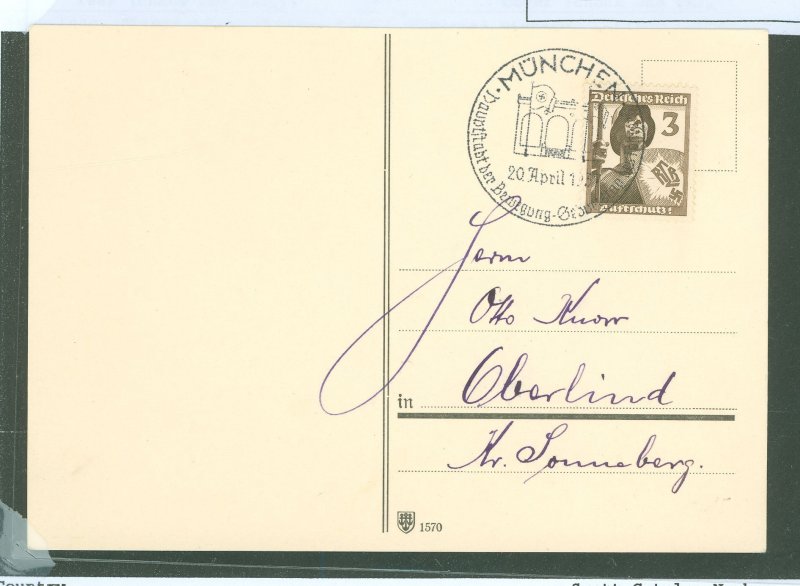 MÜNCHEN
Hauptstadt der Bewegung
20. April
Deutsches Reich
3
RLB
Luftschutz!
Herrn
Otto Knorr
Oberlind
in
Kr. Sonneberg.
1570
Country